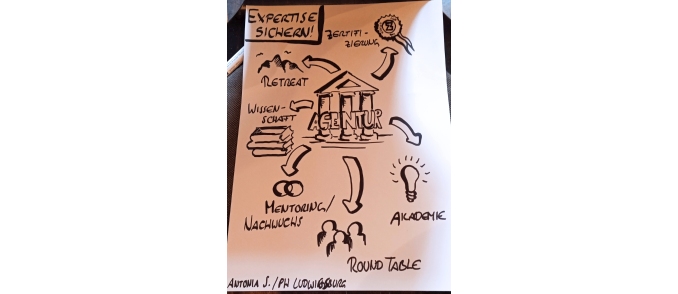 EXPERTISE
SICHERN!
ZERTIFI-
ZIERUNG
RETREAT
WISSEN-
SCHAFT
AGENTUR
MENTORING/
NACHWUCHS
AKADEMIE
ROUND TABLE
ANTONIA S./PH LUDWIGSBURG